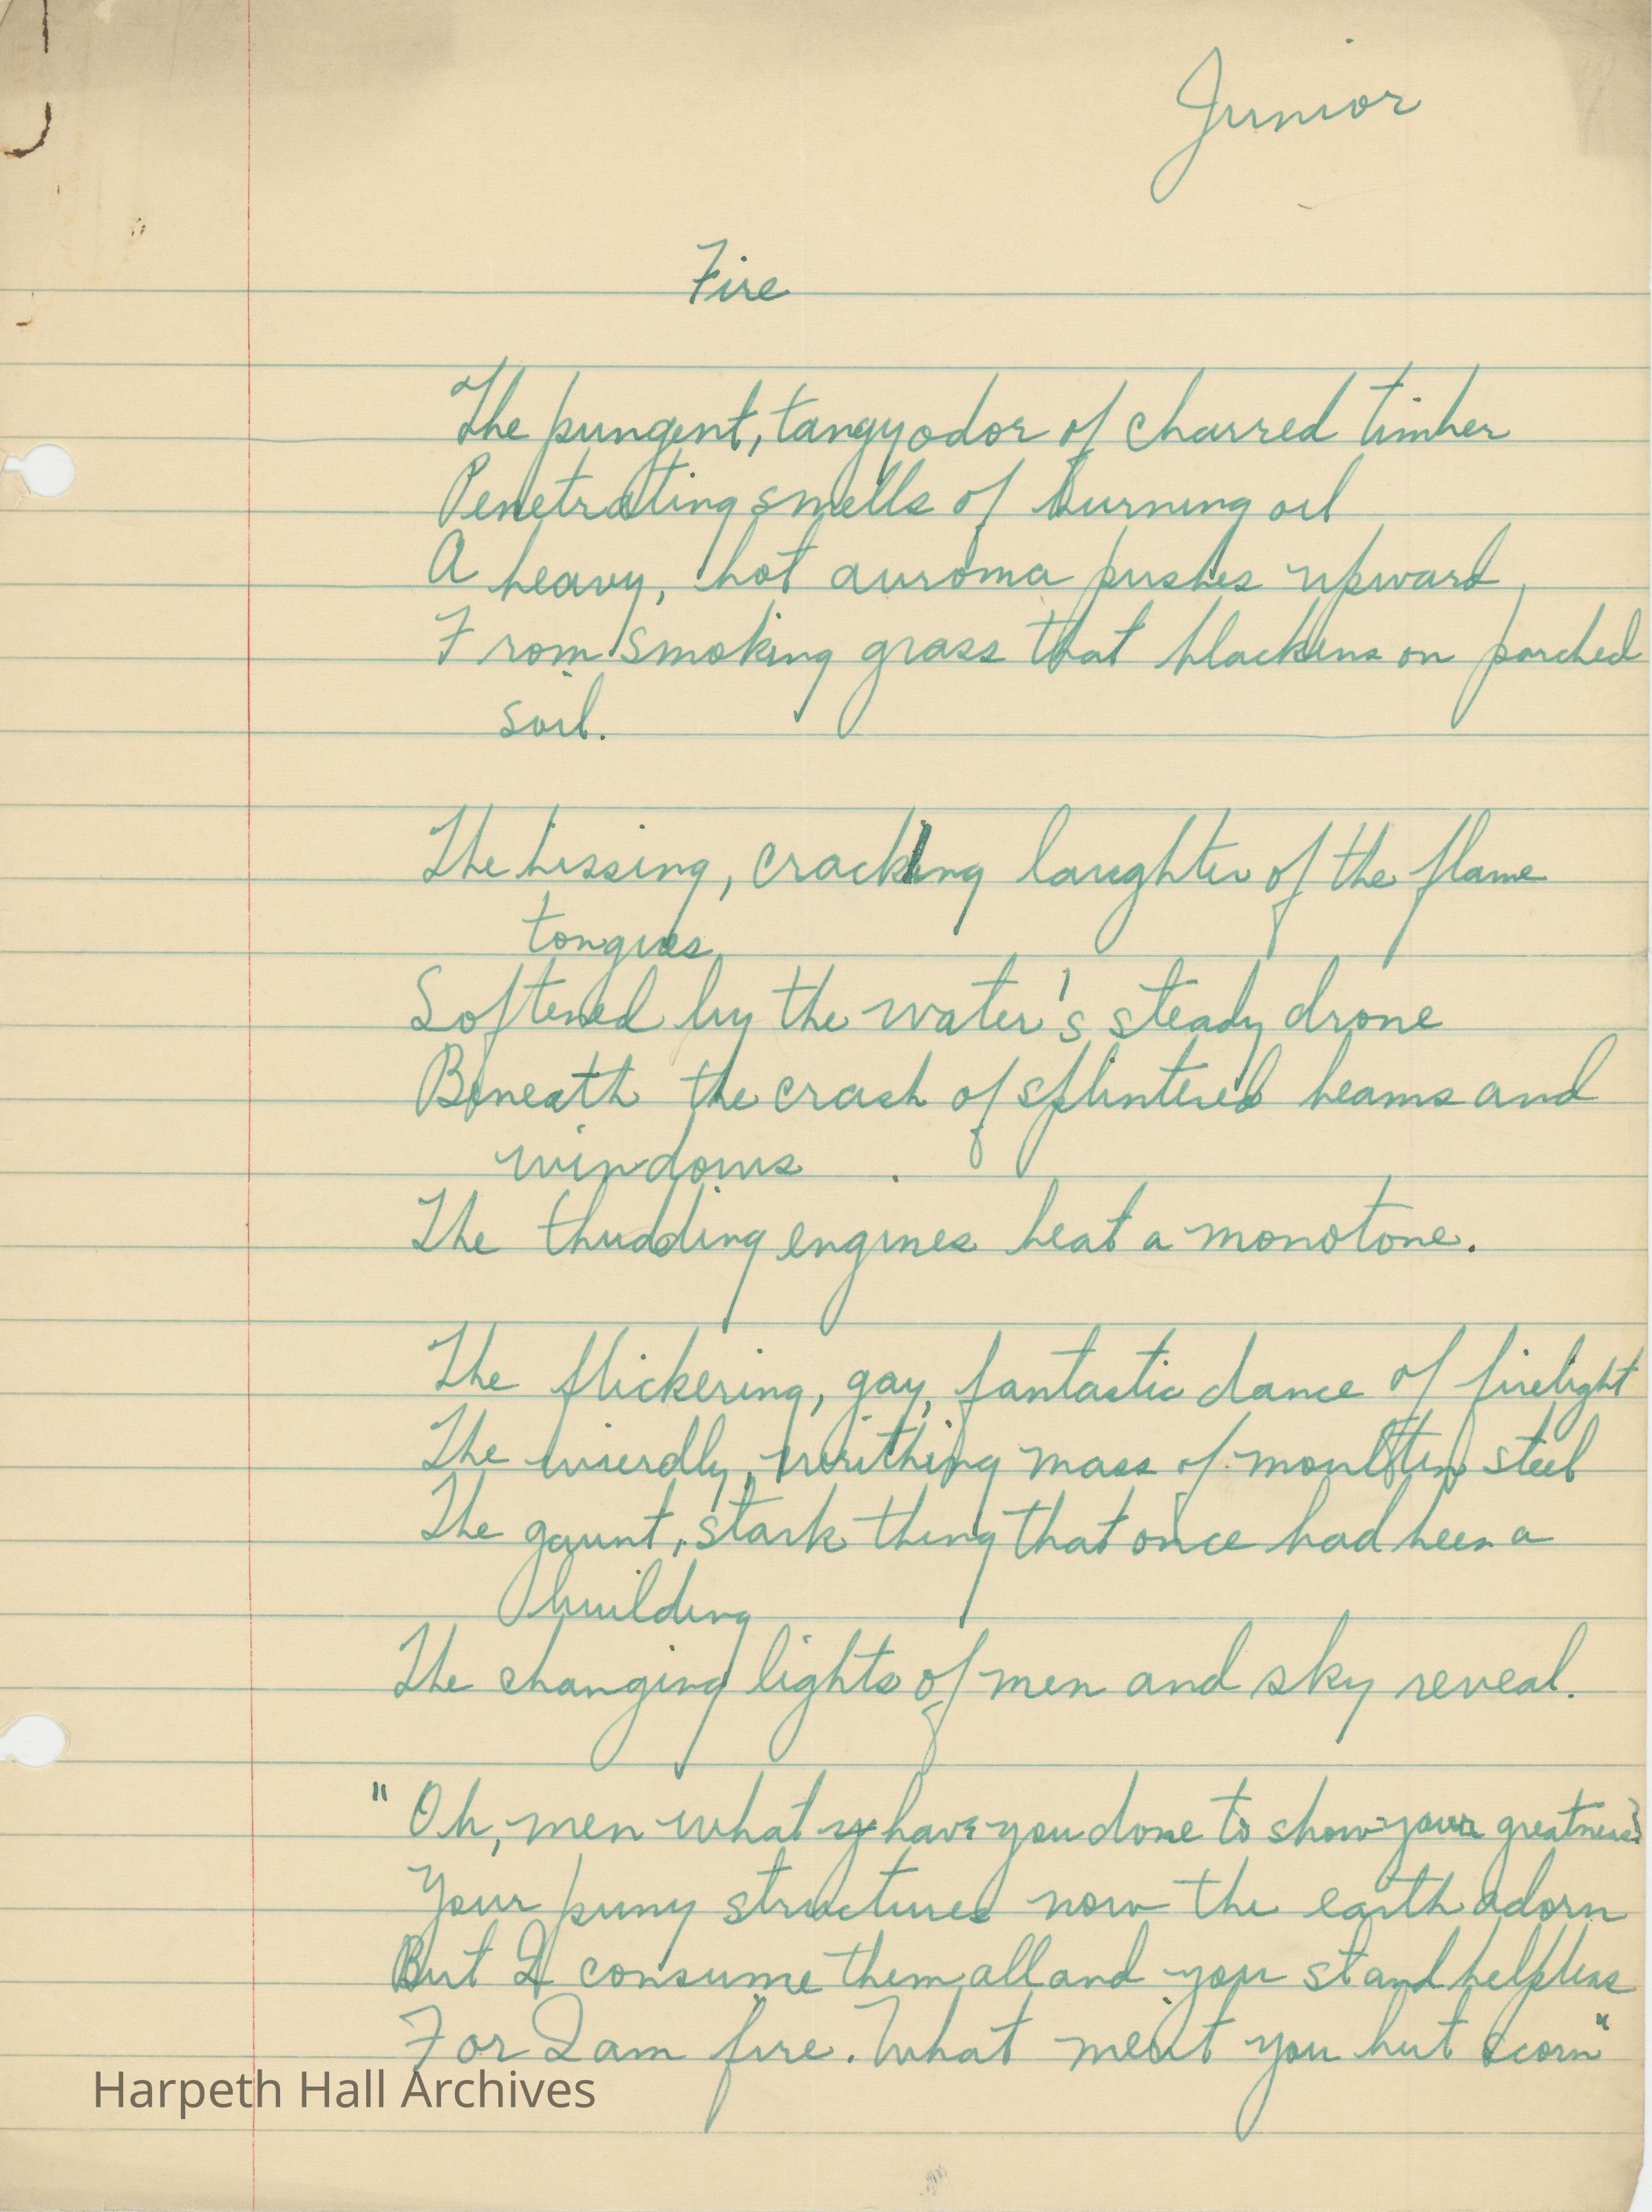 Junior
Fire
The pungent, tangy odor of charred timber
Penetrating smells of burning oil
A heavy, hot auroma pushes upward,
From smoking grass that blackens on parched
soil.
The hissing, crackling laughter of the flame
tongues
Softened by the water's steady drone
Beneath the crash of splintered beams and
windows.
The thudding engines beat a monotone.
The flickering, gay, fantastic dance of firelight
The wierdly, writhing mass of moulten steel
The gaunt, stark thing that once had been a
building
The changing lights of men and sky reveal.
"Oh, men what have you done to show your greatness?
Your puny structures now the earth adorn
But I consume them all and you stand helpless
For I am fire. What merit you but scorn"
Harpeth Hall Archives